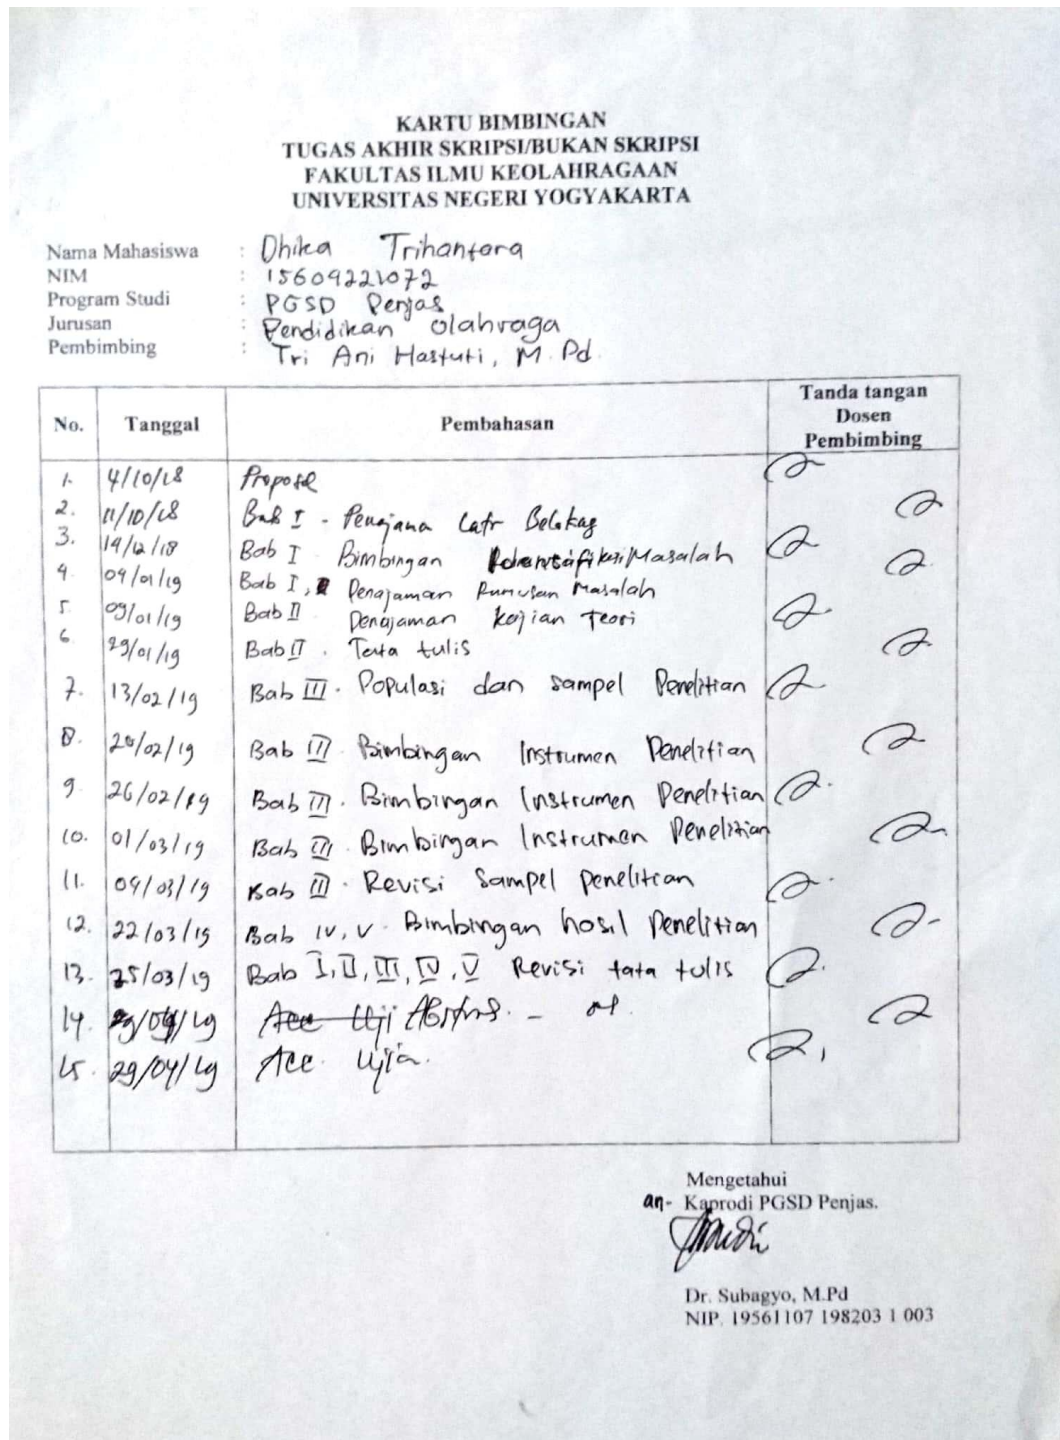 KARTU BIMBINGAN
TUGAS AKHIR SKRIPSI/BUKAN SKRIPSI
FAKULTAS ILMU KEOLAHRAGAAN
UNIVERSITAS NEGERI YOGYAKARTA
Nama Mahasiswa : Dhika Trihantara
NIM : 15604221072
Program Studi : PGSD Penjas
Jurusan : Pendidikan Olahraga
Pembimbing : Tri Ani Hastuti, M.Pd.
No. Tanggal Pembahasan Tanda tangan Dosen Pembimbing
1. 4/10/18 Proposal
2. 11/10/18 Bab I - Penajaman Latr Belakag
3. 14/12/18 Bab I Bimbingan Masalah
4. 04/01/19 Bab I, Penajaman Rumusan Masalah
5. 09/01/19 Bab II Penajaman kajian Teori
6. 29/01/19 Bab II . Tata tulis
7. 13/02/19 Bab III. Populasi dan sampel Penelitian
8. /02/19 Bab III. Bimbingan Instrumen Penelitian
9. 26/02/19 Bab III. Bimbingan Instrumen Penelitian
10. 01/03/19 Bab III. Bimbingan Instrumen Penelitian
11. 04/03/19 Bab III. Revisi Sampel penelitian
12. 22/03/19 Bab IV, V. Bimbingan hasil Penelitian
13. 25/03/19 Bab I, II, III, IV, V Revisi tata tulis
14.
15. 29/04/19 Acc Ujia.
Mengetahui
an- Kaprodi PGSD Penjas.
Dr. Subagyo, M.Pd
NIP. 19561107 198203 1 003